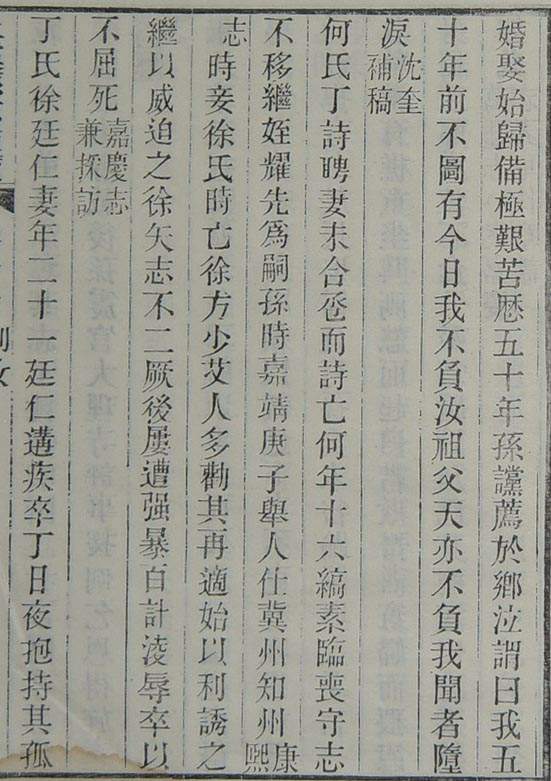 婚娶始歸備極艱苦厯五十年孫讜薦於鄉泣謂曰我五
十年前不圖有今日我不負汝祖父天亦不負我聞者墮
淚沈奎補稿
何氏丁詩聘妻未合卺而詩亡何年十六縞素臨喪守志
不移繼姪耀先爲嗣孫時嘉靖庚子舉人仕冀州知州康熙
志
時妾徐氏時亡徐方少艾人多勸其再適始以利誘之
繼以威迫之徐矢志不二厥後屢遭强暴百計淩辱卒以
不屈死嘉慶志兼採訪
丁氏徐廷仁妻年二十一廷仁遘疾卒丁日夜抱持其孤
列女